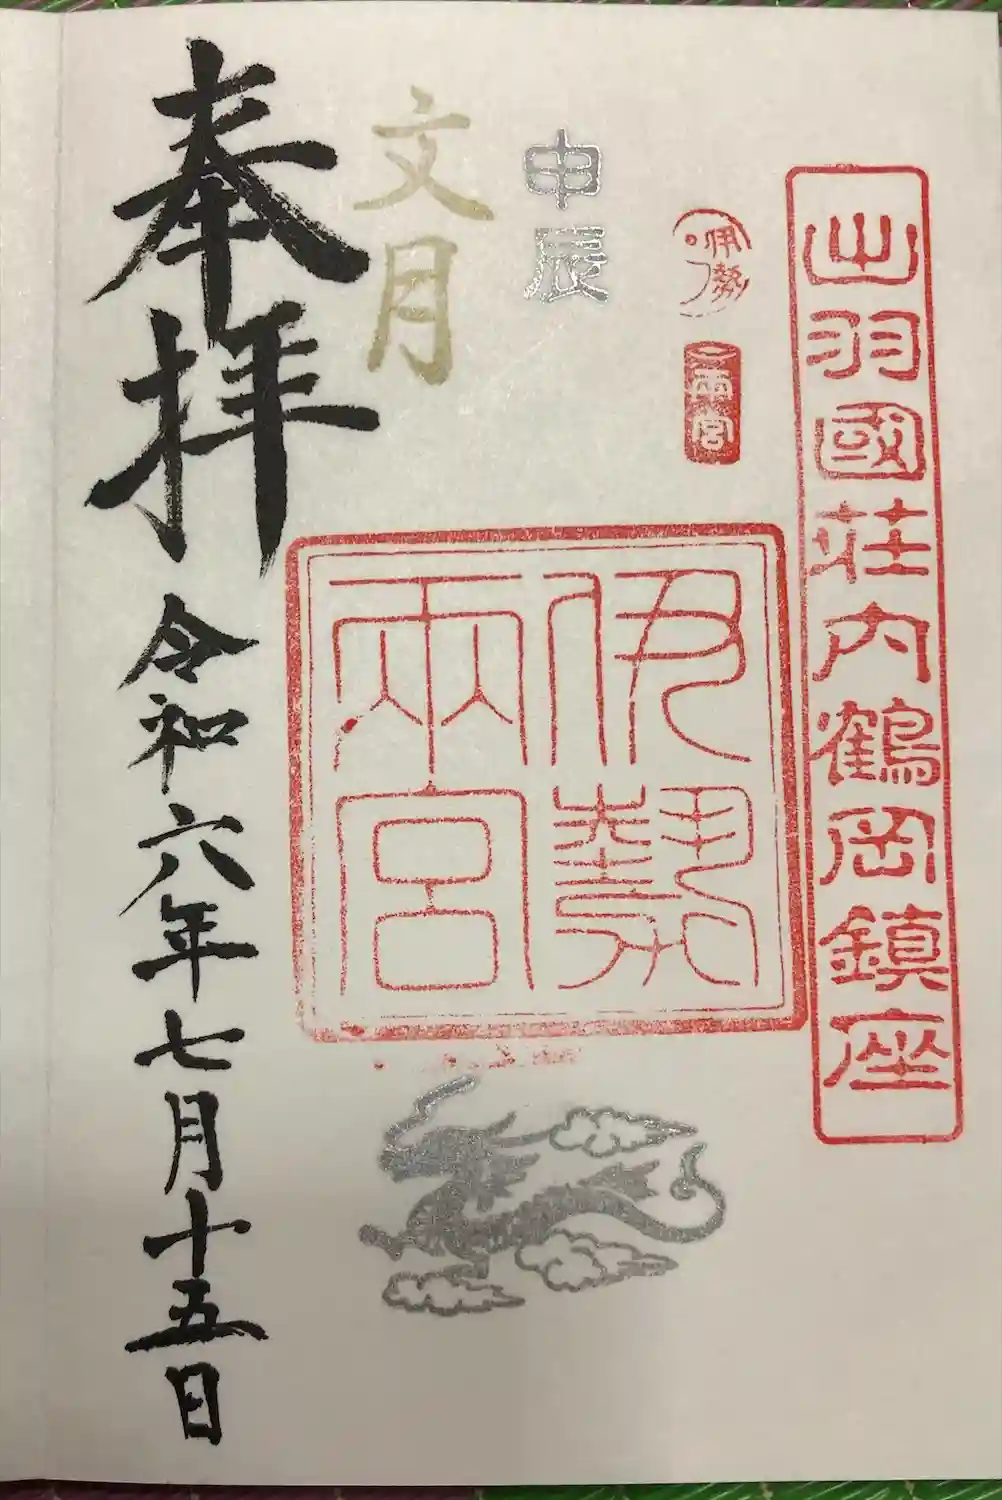 出羽國荘内鶴岡鎮座
伊勢
両宮
伊勢
兩宮
甲辰
文月
奉拝
令和六年七月十五日